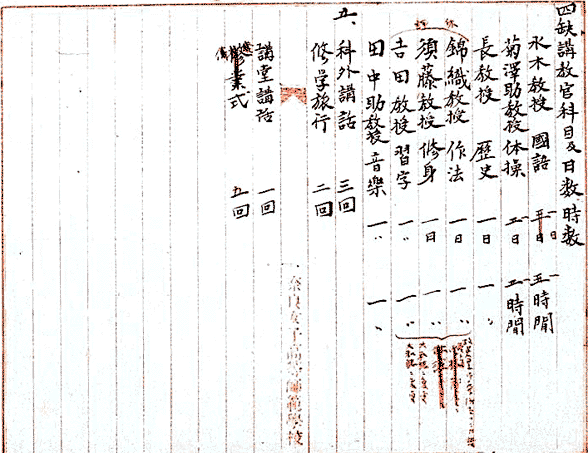 四、缺講教官科目及日数時数
水木教授 國語 五日 五時間
菊澤助教授 体操 一日 一時間
長教授 歴史 一日 一〃
錦織教授 作法 一日 一〃
須藤教授 修身 一日 一〃
吉田教授 習字 一〃 一〃
田中助教授 音樂 一〃 一〃
五、科外講話 三回
修学旅行 二回
奈良女子高等師範學校
講堂講話 一回
業式 五回